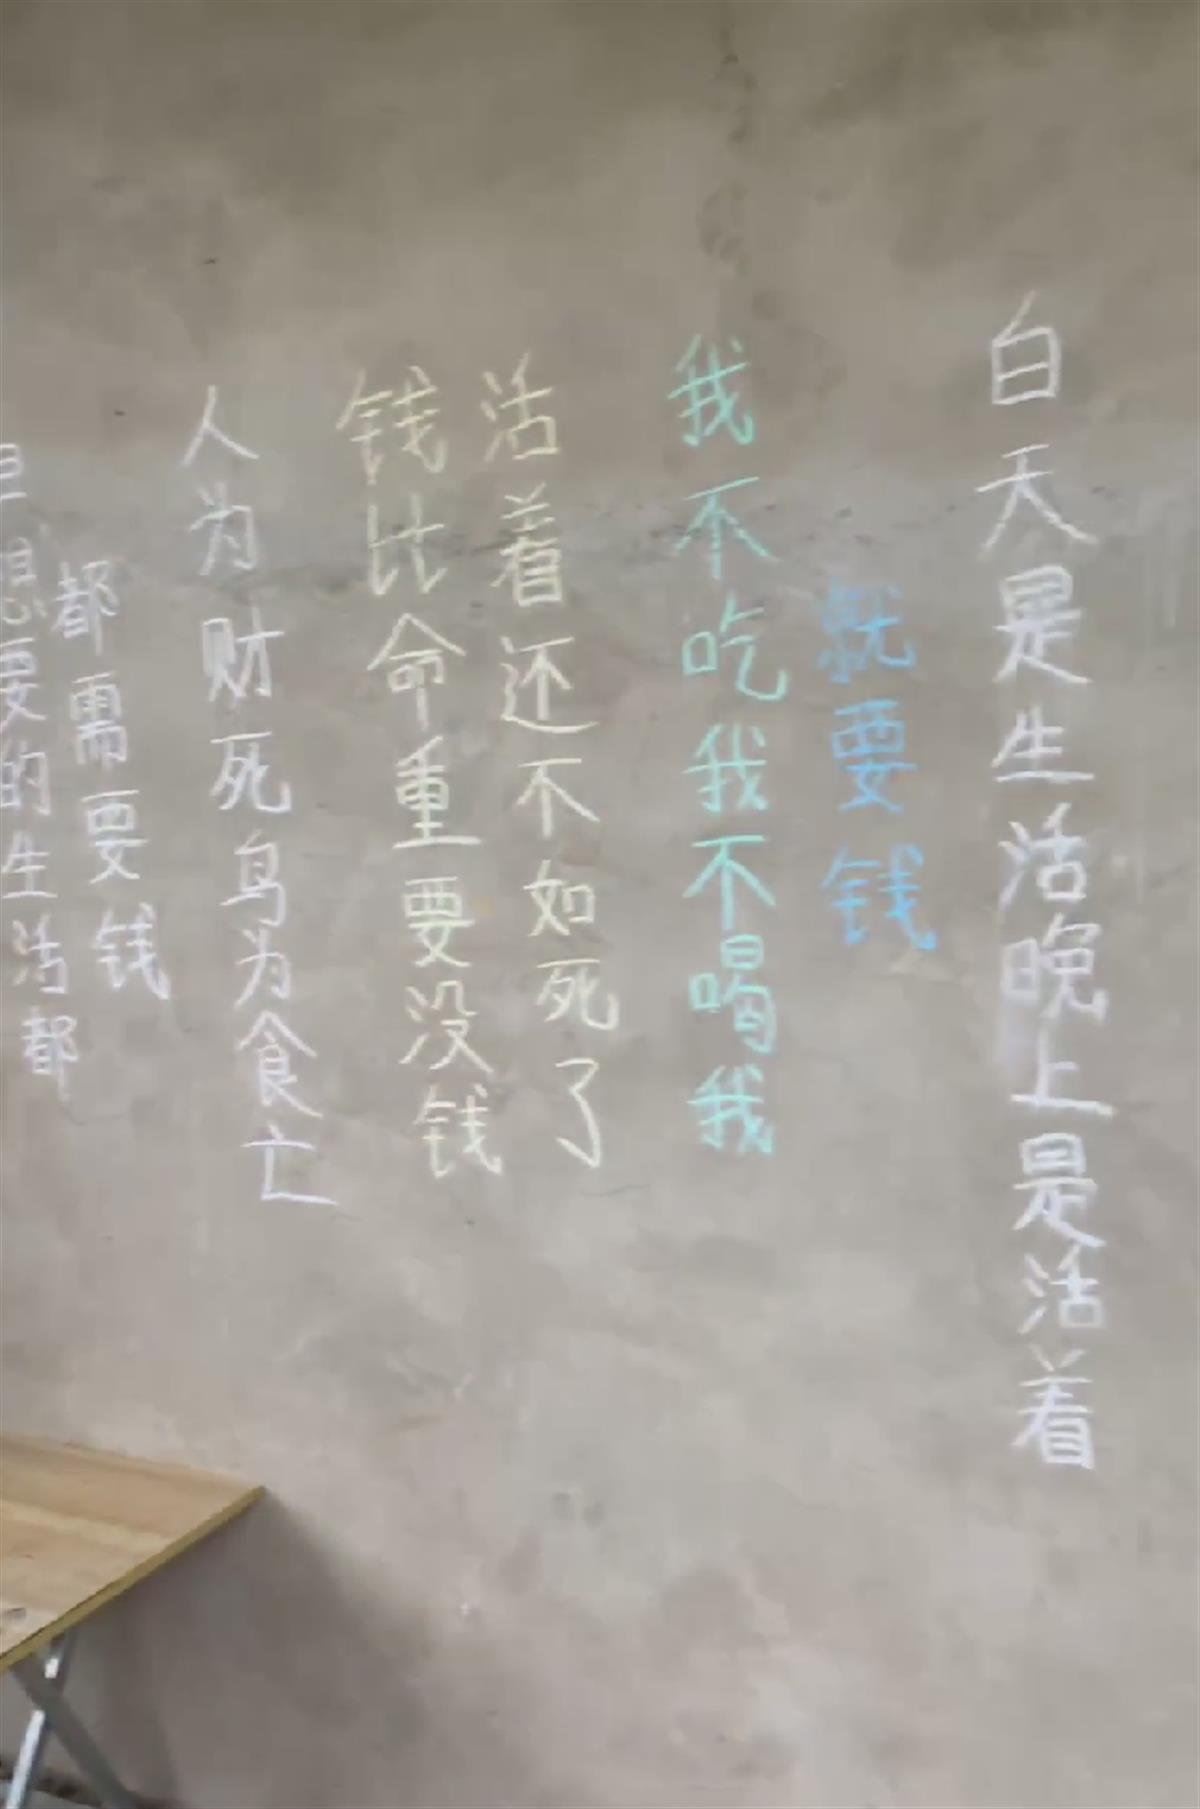 想要的生活都
都需要钱
人为财死鸟为食亡
钱比命重要没钱
活着还不如死了
我不吃我不喝我
就要钱
白天是生活晚上是活着